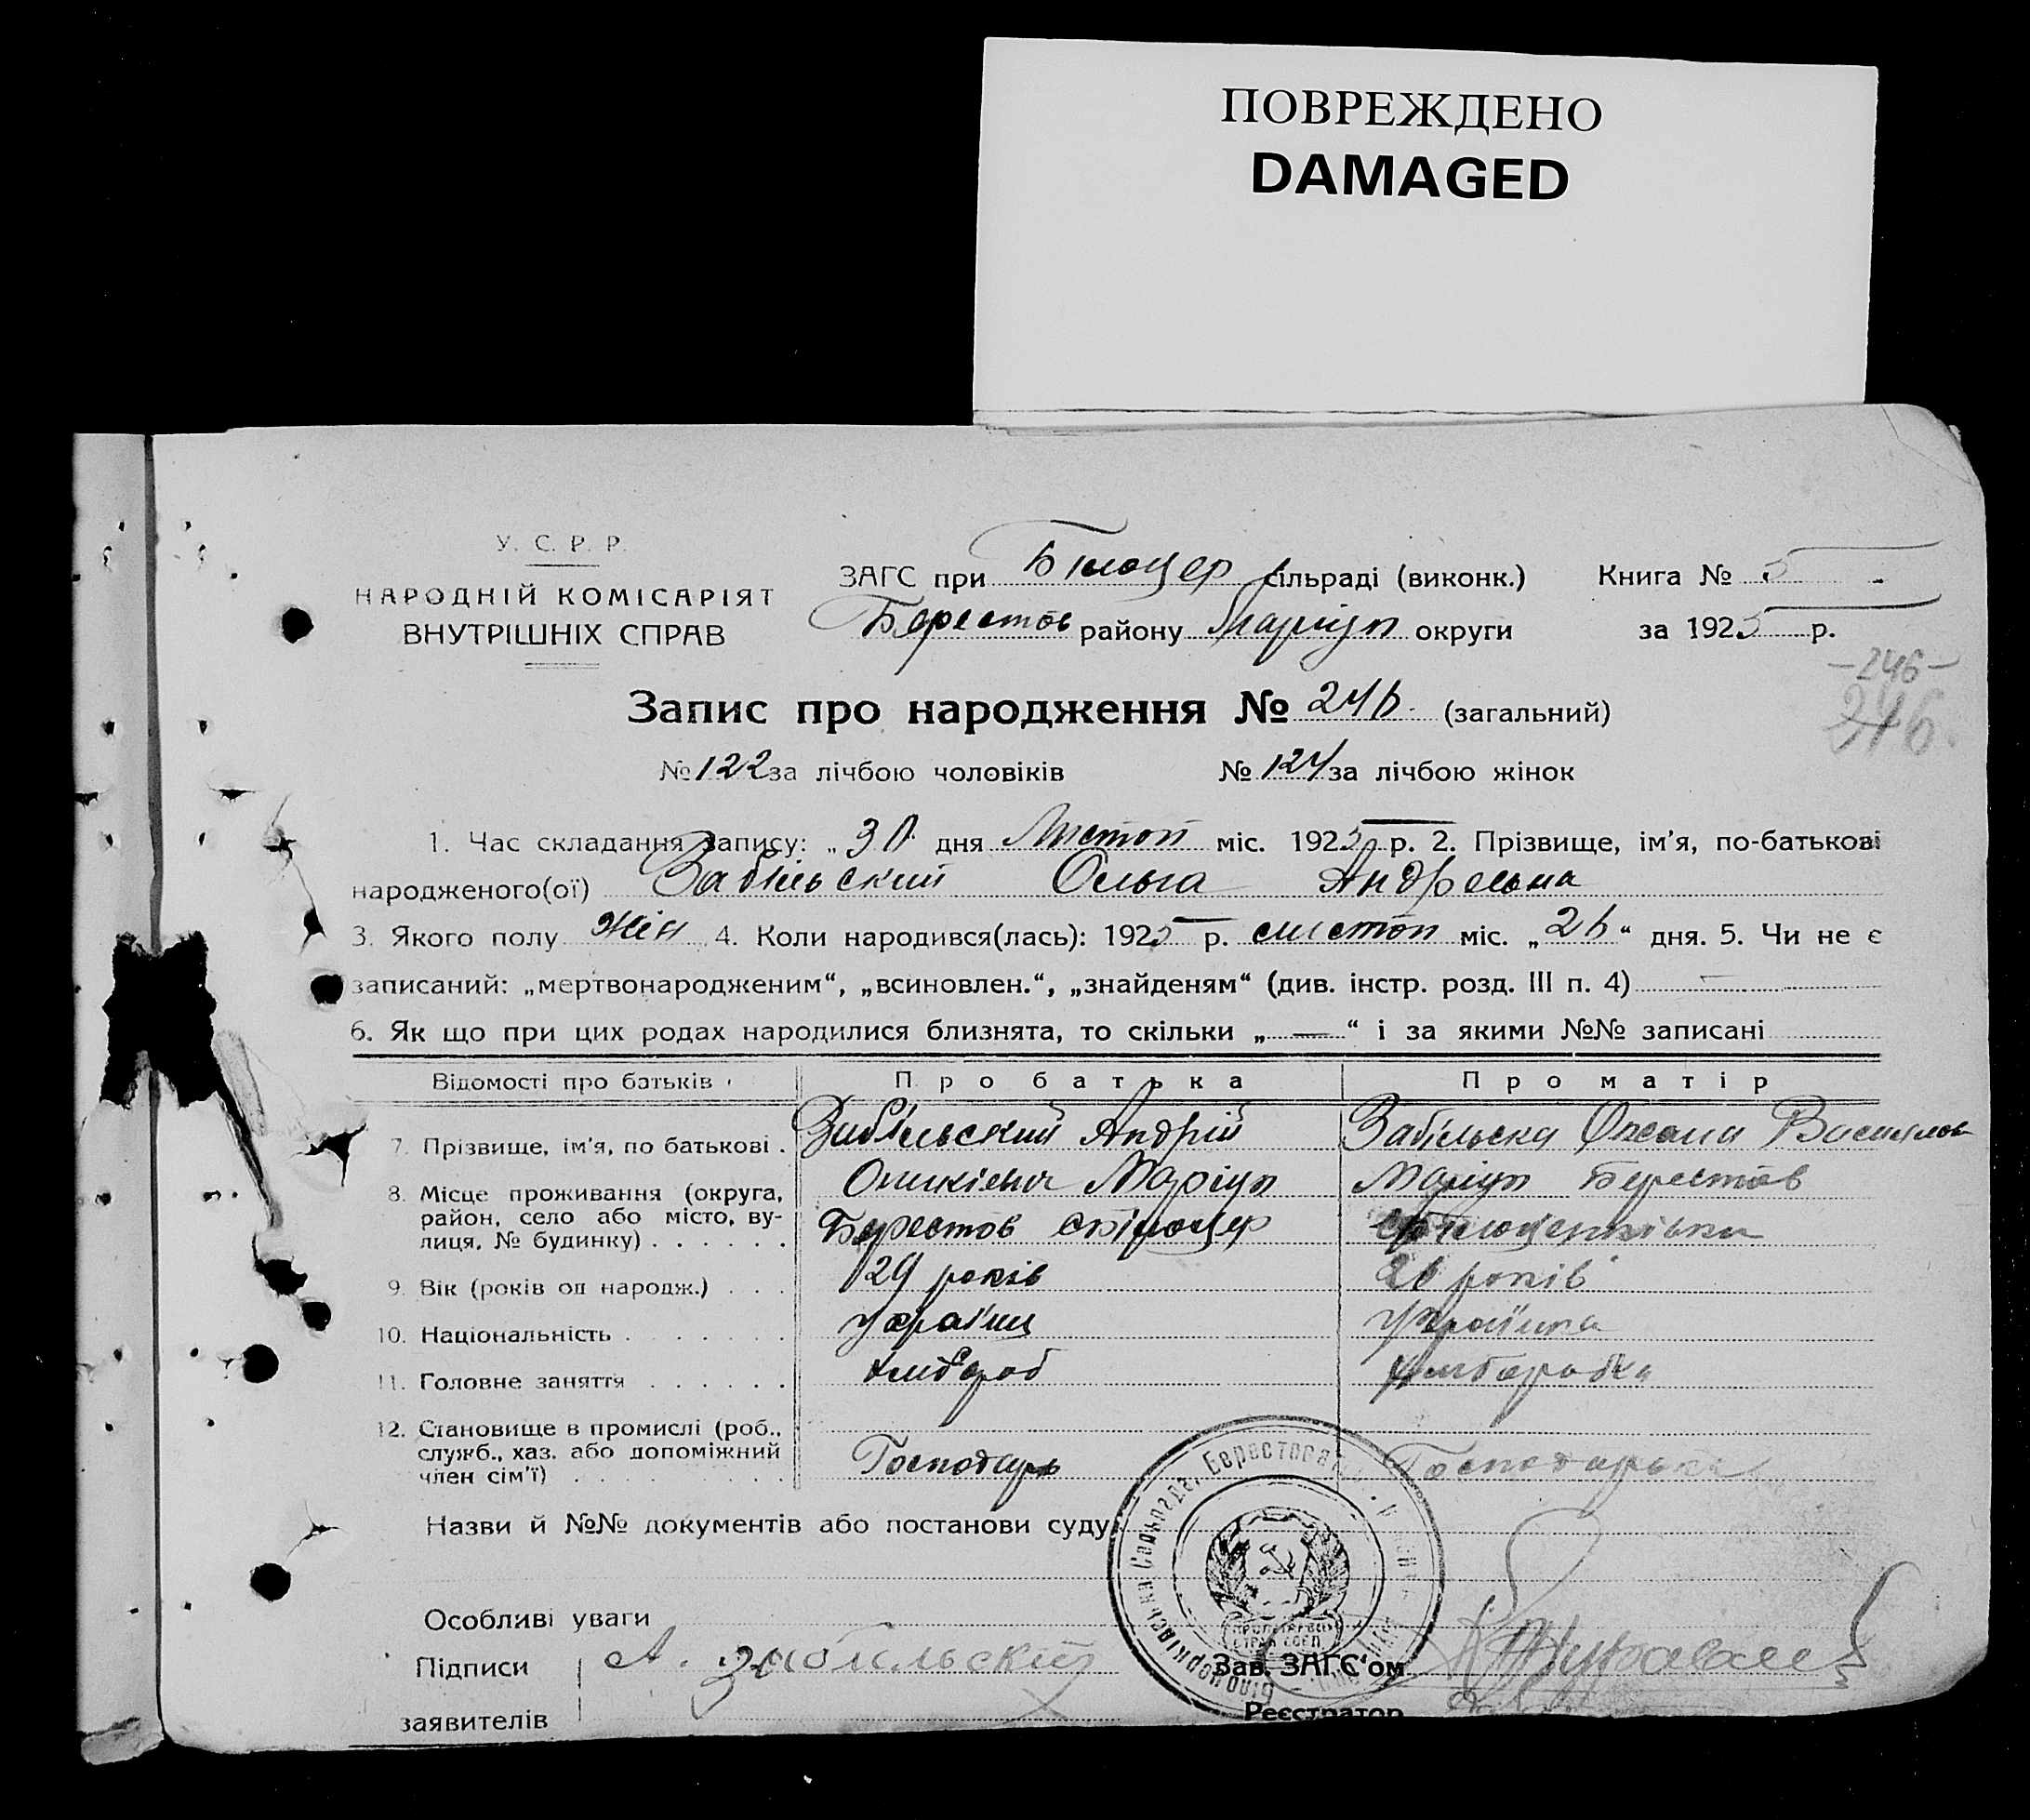 ПОВРЕЖДЕНО
DAMAGED
У. С. Р. Р.
НАРОДНІЙ КОМІСАРІЯТ
ВНУТРІШНІХ СПРАВ
ЗАГС при Білоцер сільраді (виконк.) Книга № 5
Берестов району Маріуп округи за 1925 р.
-246-
246
Запис про народження № 246. (загальний)
№ 122 за лічбою чоловіків № 124 за лічбою жінок
1. Час складання запису: „30 дня Листоп міс. 1925 р. 2. Прізвище, ім'я, по-батькові
народженого(ої) Забільский Ольга Андреевна
3. Якого полу жін 4. Коли народився(лась): 1925 р. листоп міс. „26“ дня. 5. Чи не є
записаний: „мертвонародженим“, „всиновлен.“, „знайденям“ (див. інстр. розд. III п. 4) —
6. Як що при цих родах народилися близнята, то скільки „—“ і за якими №№ записані
Відомості про батьків Про батька Про матір
7. Прізвище, ім'я, по батькові . Забільский Андрій Забільска Оксана Василов
8. Місце проживання (округа, Маріуп Маріуп Берестов
район, село або місто, ву- Берестов
лиця, № будинку) . . . . . .
9. Вік (років од народж.) . . . 29 років 26 років
10. Національність . . . . . . україн Українка
11. Головне заняття . . . . . . хлібороб хлібаробка
12. Становище в промислі (роб.,
служб., хаз. або допоміжний Господарь Господарька
член сім'ї) . . . . . . . . .
Назви й №№ документів або постанови суду
Особливі уваги
Підписи А. Забильский Зав. ЗАГС'ом
заявителів Реєстратор